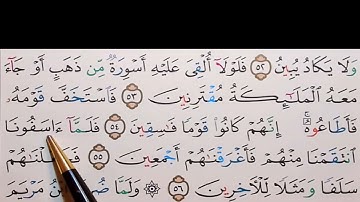 وَلَا يَكَادُ يُبِينُ ٥٢ فَلَوْلَآ أُلْقِىَ عَلَيْهِ أَسْوِرَةٌ مِّن ذَهَبٍ أَوْ جَآءَ
مَعَهُ ٱلْمَلَٰٓئِكَةُ مُقْتَرِنِينَ ٥٣ فَٱسْتَخَفَّ قَوْمَهُۥ
فَأَطَاعُوهُ إِنَّهُمْ كَانُوا۟ قَوْمًا فَٰسِقِينَ ٥٤ فَلَمَّآ ءَاسَفُونَا
ٱنتَقَمْنَا مِنْهُمْ فَأَغْرَقْنَٰهُمْ أَجْمَعِينَ ٥٥ فَجَعَلْنَٰهُمْ
سَلَفًا وَمَثَلًا لِّلْـَٔاخِرِينَ ٥٦ ۞ وَلَمَّا ضُرِبَ ٱبْنُ مَرْيَمَ